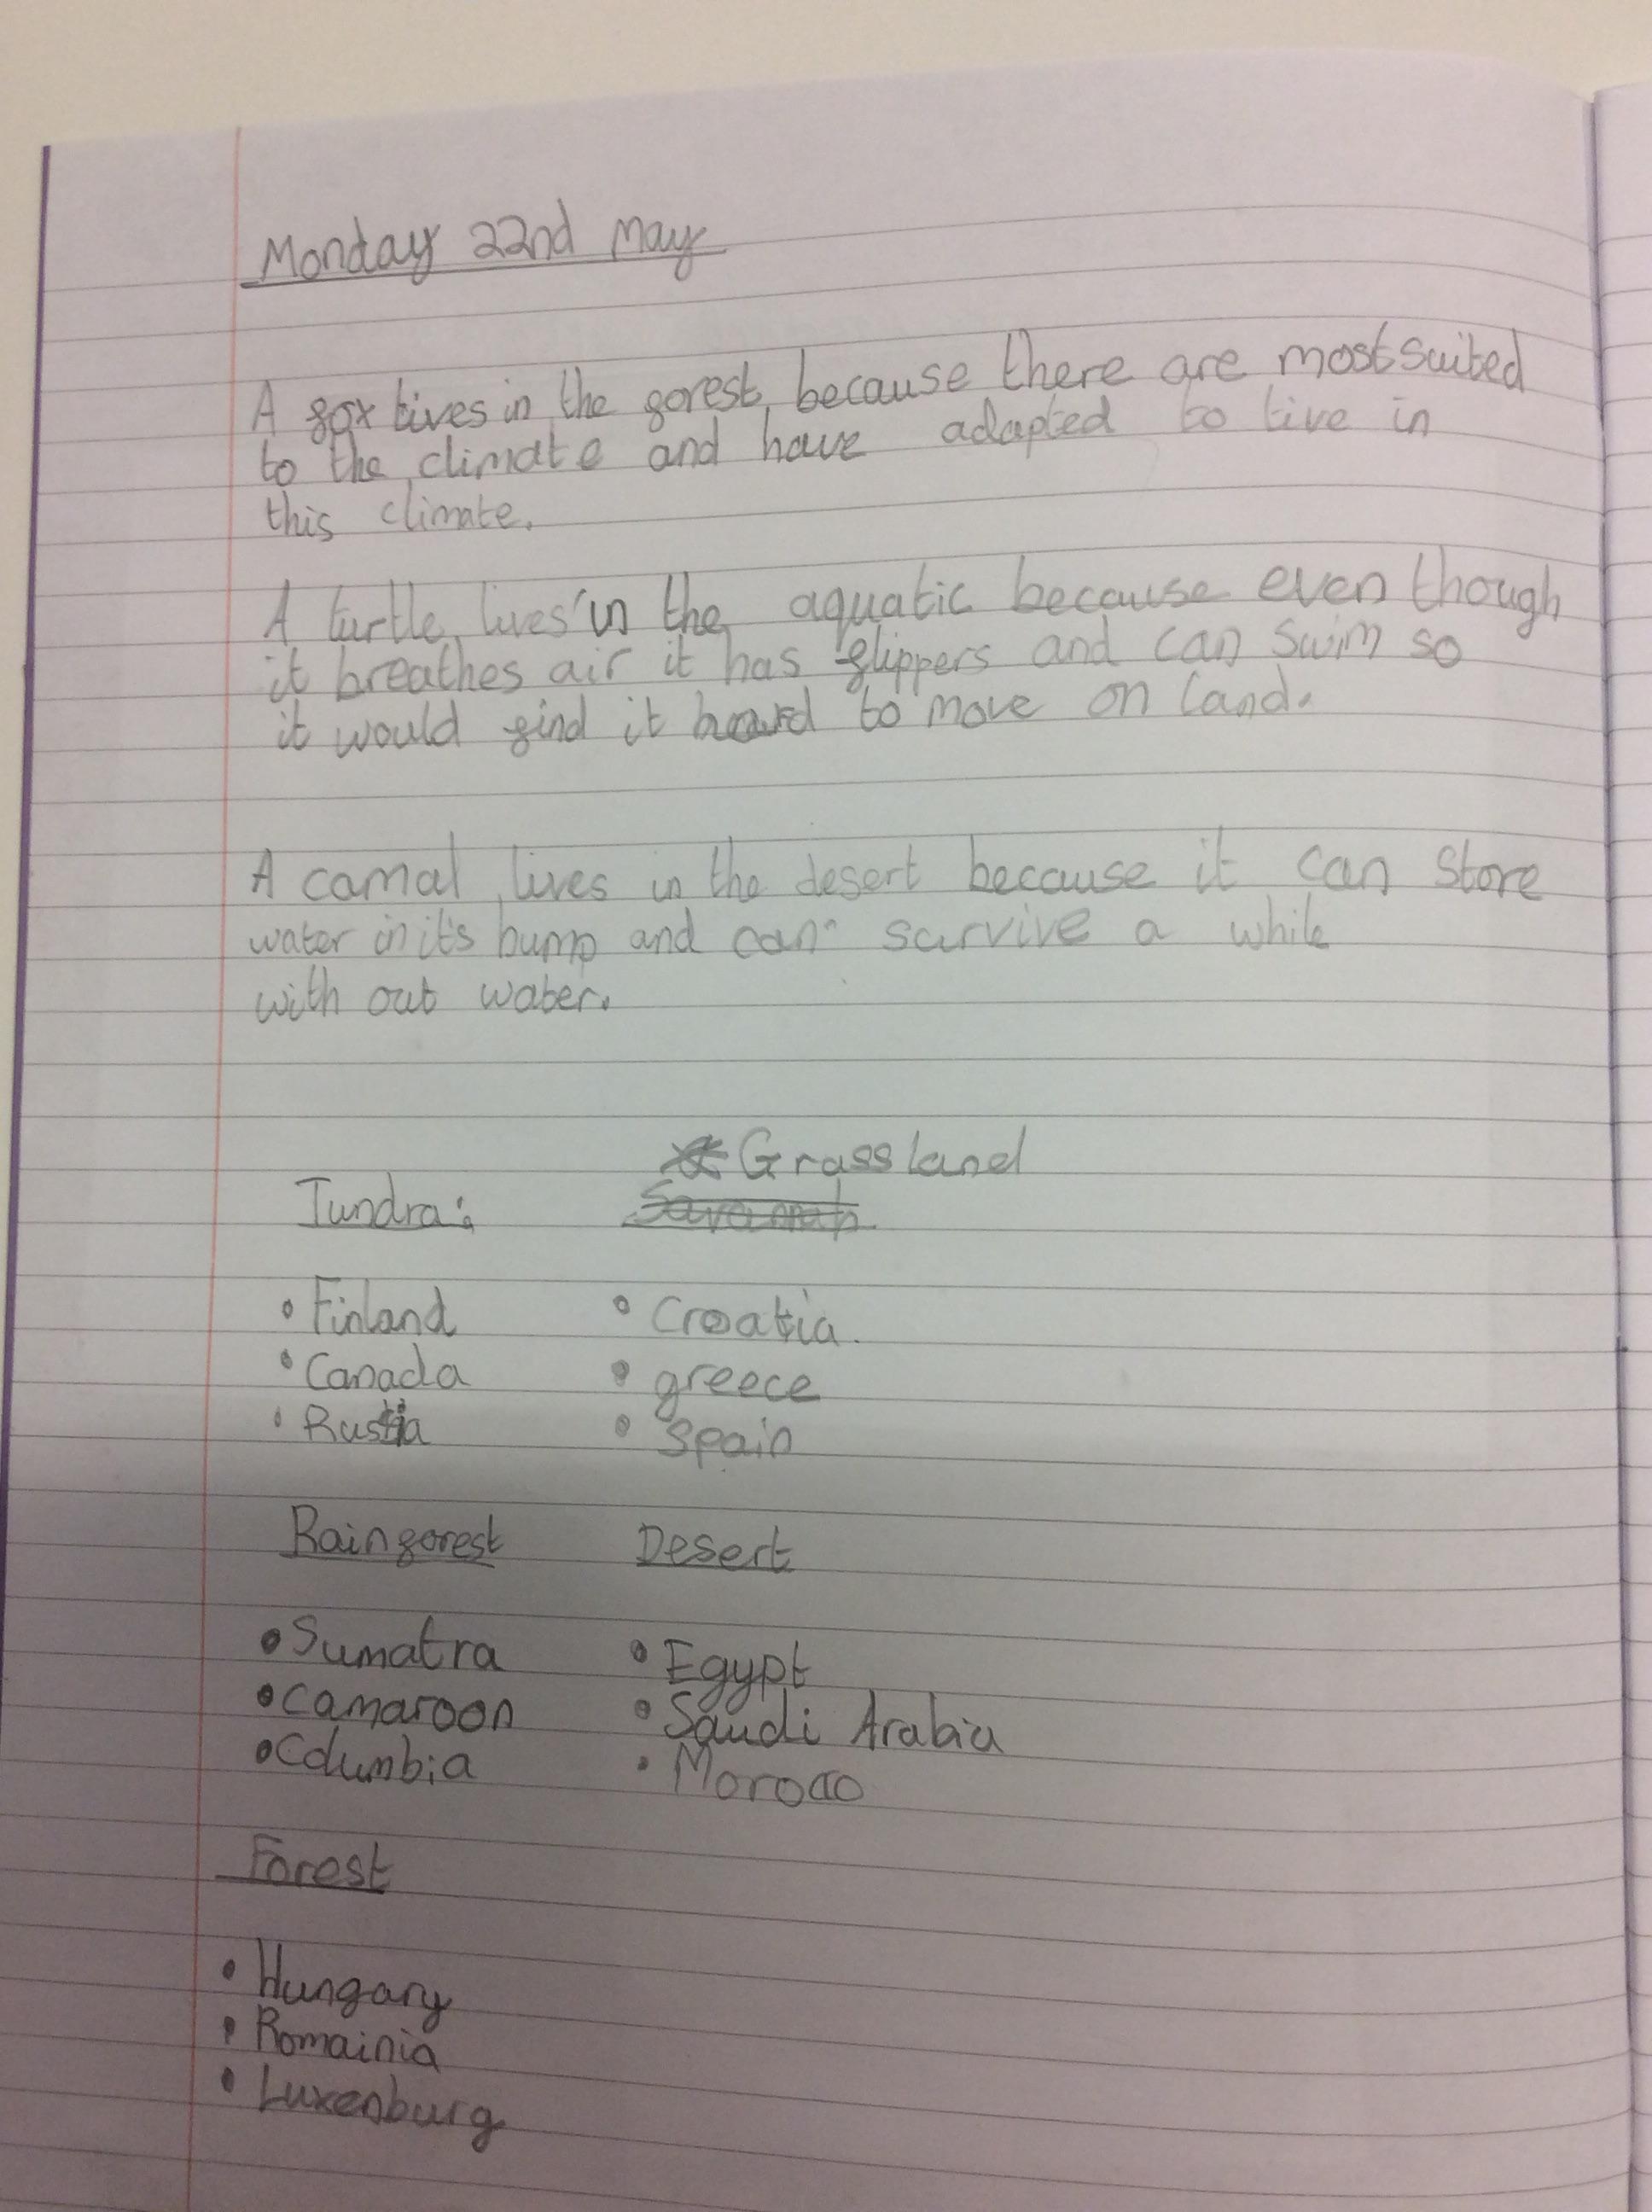 Monday 22nd May
A fox lives in the forest, because there are most suited
to the climate and have adapted to live in
this climate.
A turtle, lives in the aquatic because even though
it breathes air it has flippers and can swim so
it would find it hard to move on land.
A camal lives in the desert because it can store
water in it's bump and can survive a while
with out water.
Grassland
Tundra: Savannah
• Finland • Croatia.
• Canada • greece
• Russia • Spain
Rainforest Desert
• Sumatra • Egypt
• Camaroon • Saudi Arabia
• Columbia • Morocco
Forest
• Hungary
• Romainia
• Luxenburg